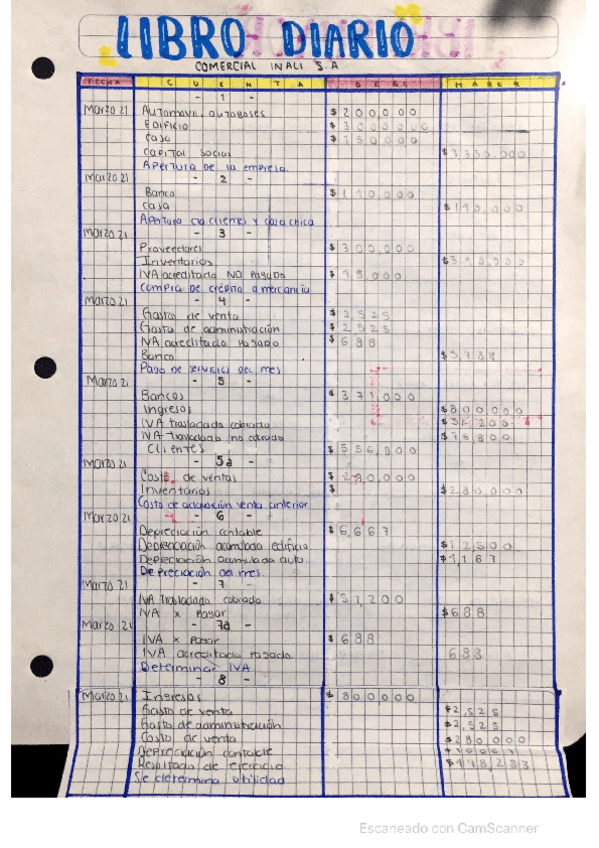 LIBRO DIARIO
COMERCIAL INALI S.A
FECHA CUENTA DEBE HABER
- 1 -
Marzo 21 Automovil autobases $200,000
EDIFICIO
Caja $150,000
Capital social
Apertura de la empresa.
Marzo 21 - 2 -
Banco $190,000
Caja $190,000
Apertura cta clientes y caja chica
Marzo 21 - 3 -
Proveedores $300,000
Inventarios
IVA acreditado NO pagado
Compra de crédito a mercancia
Marzo 21 - 4 -
Gastos de venta $2,525
Gasto de administración $2525
IVA acreditado pagado $688
Banco $5,738
Pago de servicios del mes
Marzo 21 - 5 -
Bancos $371,000
Ingresos $800000
IVA trasladado cobrado $51,200
IVA Trasladado no cobrado
Clientes $556,800
Marzo 21 - 5a -
Costo de ventas $280,000
Inventarios $ $280,000
Costo de adquisición venta anterior
Marzo 21 - 6 -
Depreciación contable
Depreciación acumulada edificio $12,500
Depreciación acumulada auto. $4,167
Depreciación del mes.
Marzo 21 - 7 -
IVA Trasladado cobrado $51,200
IVA x pagar $688
Marzo 21 - 7a -
IVA x pagar $688
IVA acreditado pagado 688
Determinar IVA
- 8 -
Marzo 21 Ingresos $800000
Gasto de venta $2,525
Gasto de administración $2,525
Costo de venta $280000
Depreciación contable
Resultado de ejercicio $498,283
Se determina utilidad
Escaneado con CamScanner